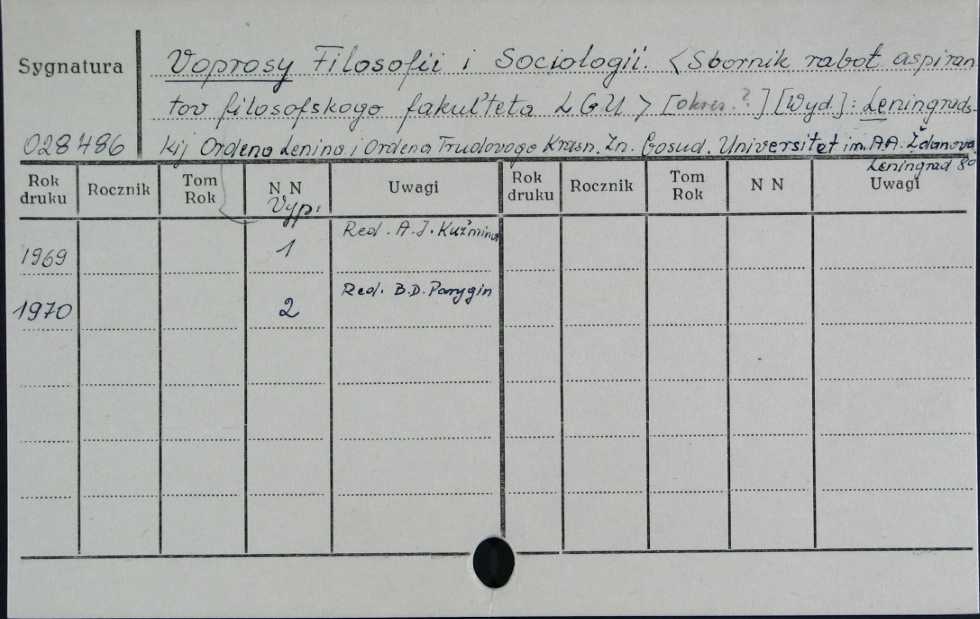 Sygnatura
Voprosy Filosofii i Sociologii. <Sbornik rabot aspiran
tov filosofskogo fakul'teta LGU> [okres.?] [Wyd.]: Leningrads
028486
kij Ordena Lenina i Ordena Trudovogo Krasn. Zn. Gosud. Universitet im. A.A. Ždanova
Leningrad 8°
Rok druku Rocznik Tom Rok N N Uwagi Rok druku Rocznik Tom Rok N N Uwagi
Vyp.
1969 1 Red. A.J. Kuźmina
1970 2 Red. B.D. Parygin